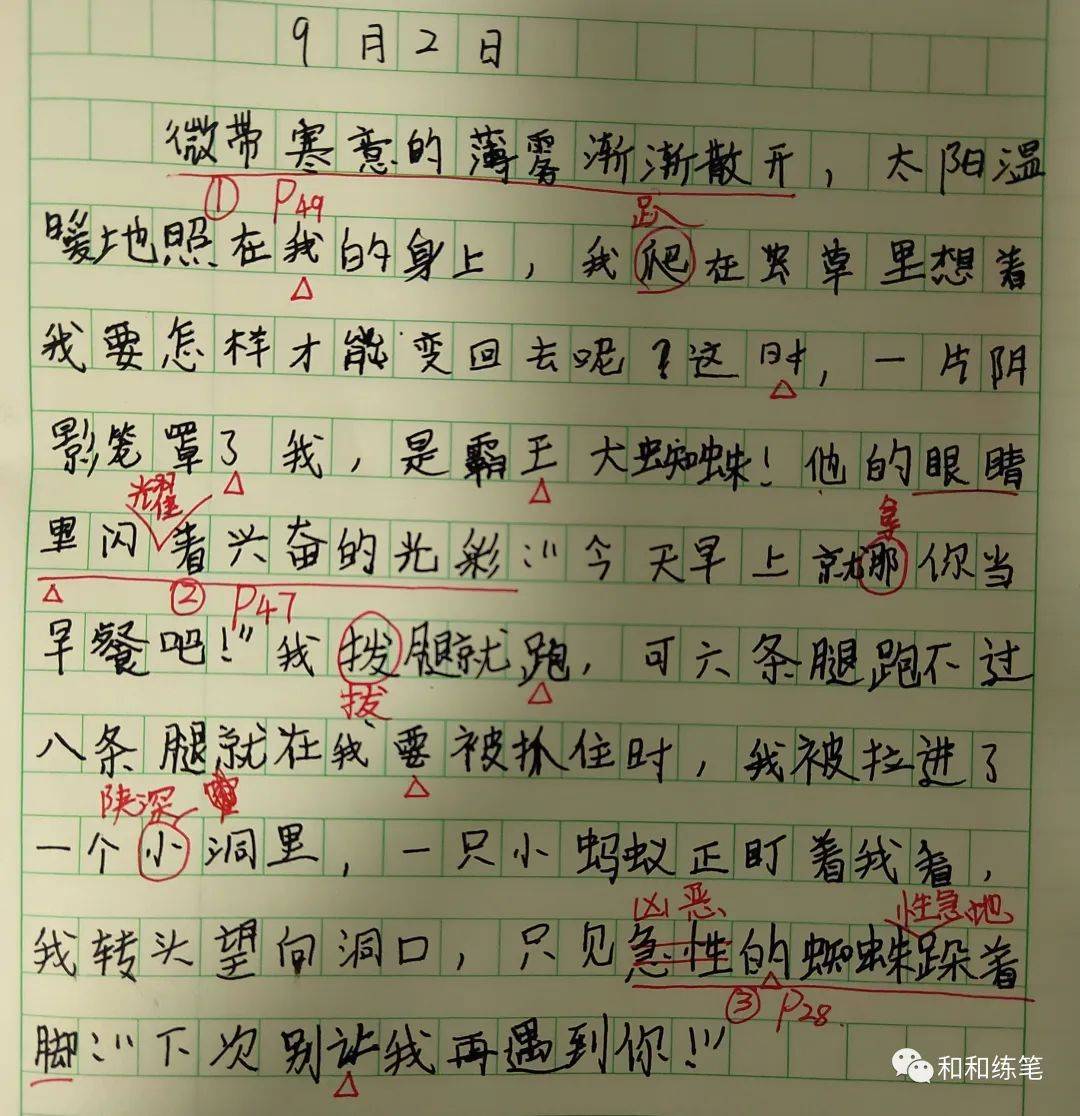 9月2日
微带寒意的薄雾渐渐散开，太阳温
① P49
趴
暖地照在我的身上，我爬在草里想着
我要怎样才能变回去呢？这时，一片阴
影笼罩了我，是霸王大蜘蛛！他的眼睛
耀
拿
里闪着兴奋的光彩：“今天早上就那你当
② P47
早餐吧！”我拨腿就跑，可六条腿跑不过
拔
八条腿就在我要被抓住时，我被拉进了
深
一个小洞里，一只小蚂蚁正盯着我着，
凶恶
性急地
我转头望向洞口，只见急性的蜘蛛跺着
③ P28.
脚：“下次别让我再遇到你！”
和和练笔